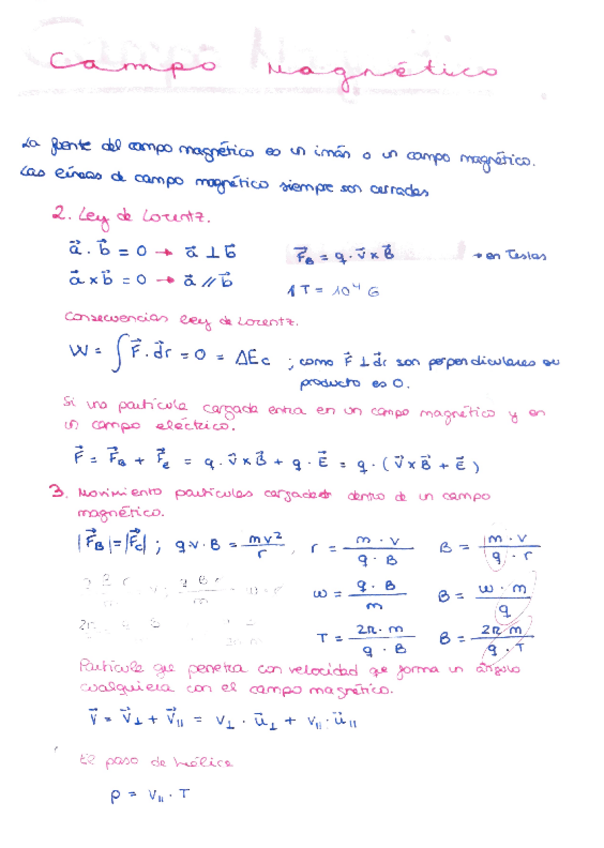 Campo Magnético
La fuente del campo magnético es un imán o un campo magnético.
Las líneas de campo magnético siempre son cerradas
2. Ley de Lorentz.
a⃗ · b⃗ = 0 → a⃗ ⊥ b⃗
F⃗_B = q · v⃗ x B⃗ → en Teslas
a⃗ x b⃗ = 0 → a⃗ // b⃗
1 T = 10⁴ G
Consecuencias ley de Lorentz.
W = ∫ F⃗ · dr⃗ = 0 = ΔEc ; como F⃗ ⊥ dr⃗ son perpendiculares su
producto es 0.
Si una partícula cargada entra en un campo magnético y en
un campo eléctrico.
F⃗ = F⃗_B + F⃗_e = q · v⃗ x B⃗ + q · E⃗ = q · (v⃗ x B⃗ + E⃗)
3. Movimiento partículas cargadas dentro de un campo
magnético.
|F⃗_B| = |F⃗_C| ; q·v·B = mv²/r , r = m·v / q·B    B = m·v / q·r
w = q·B / m    B = w·m / q
T = 2π·m / q·B    B = 2π m / q·T
Partícula que penetra con velocidad que forma un ángulo
cualquiera con el campo magnético.
v⃗ = v⃗⊥ + v⃗∥ = v⊥ · u⃗⊥ + v∥ · u⃗∥
El paso de hélice
p = v∥ · T